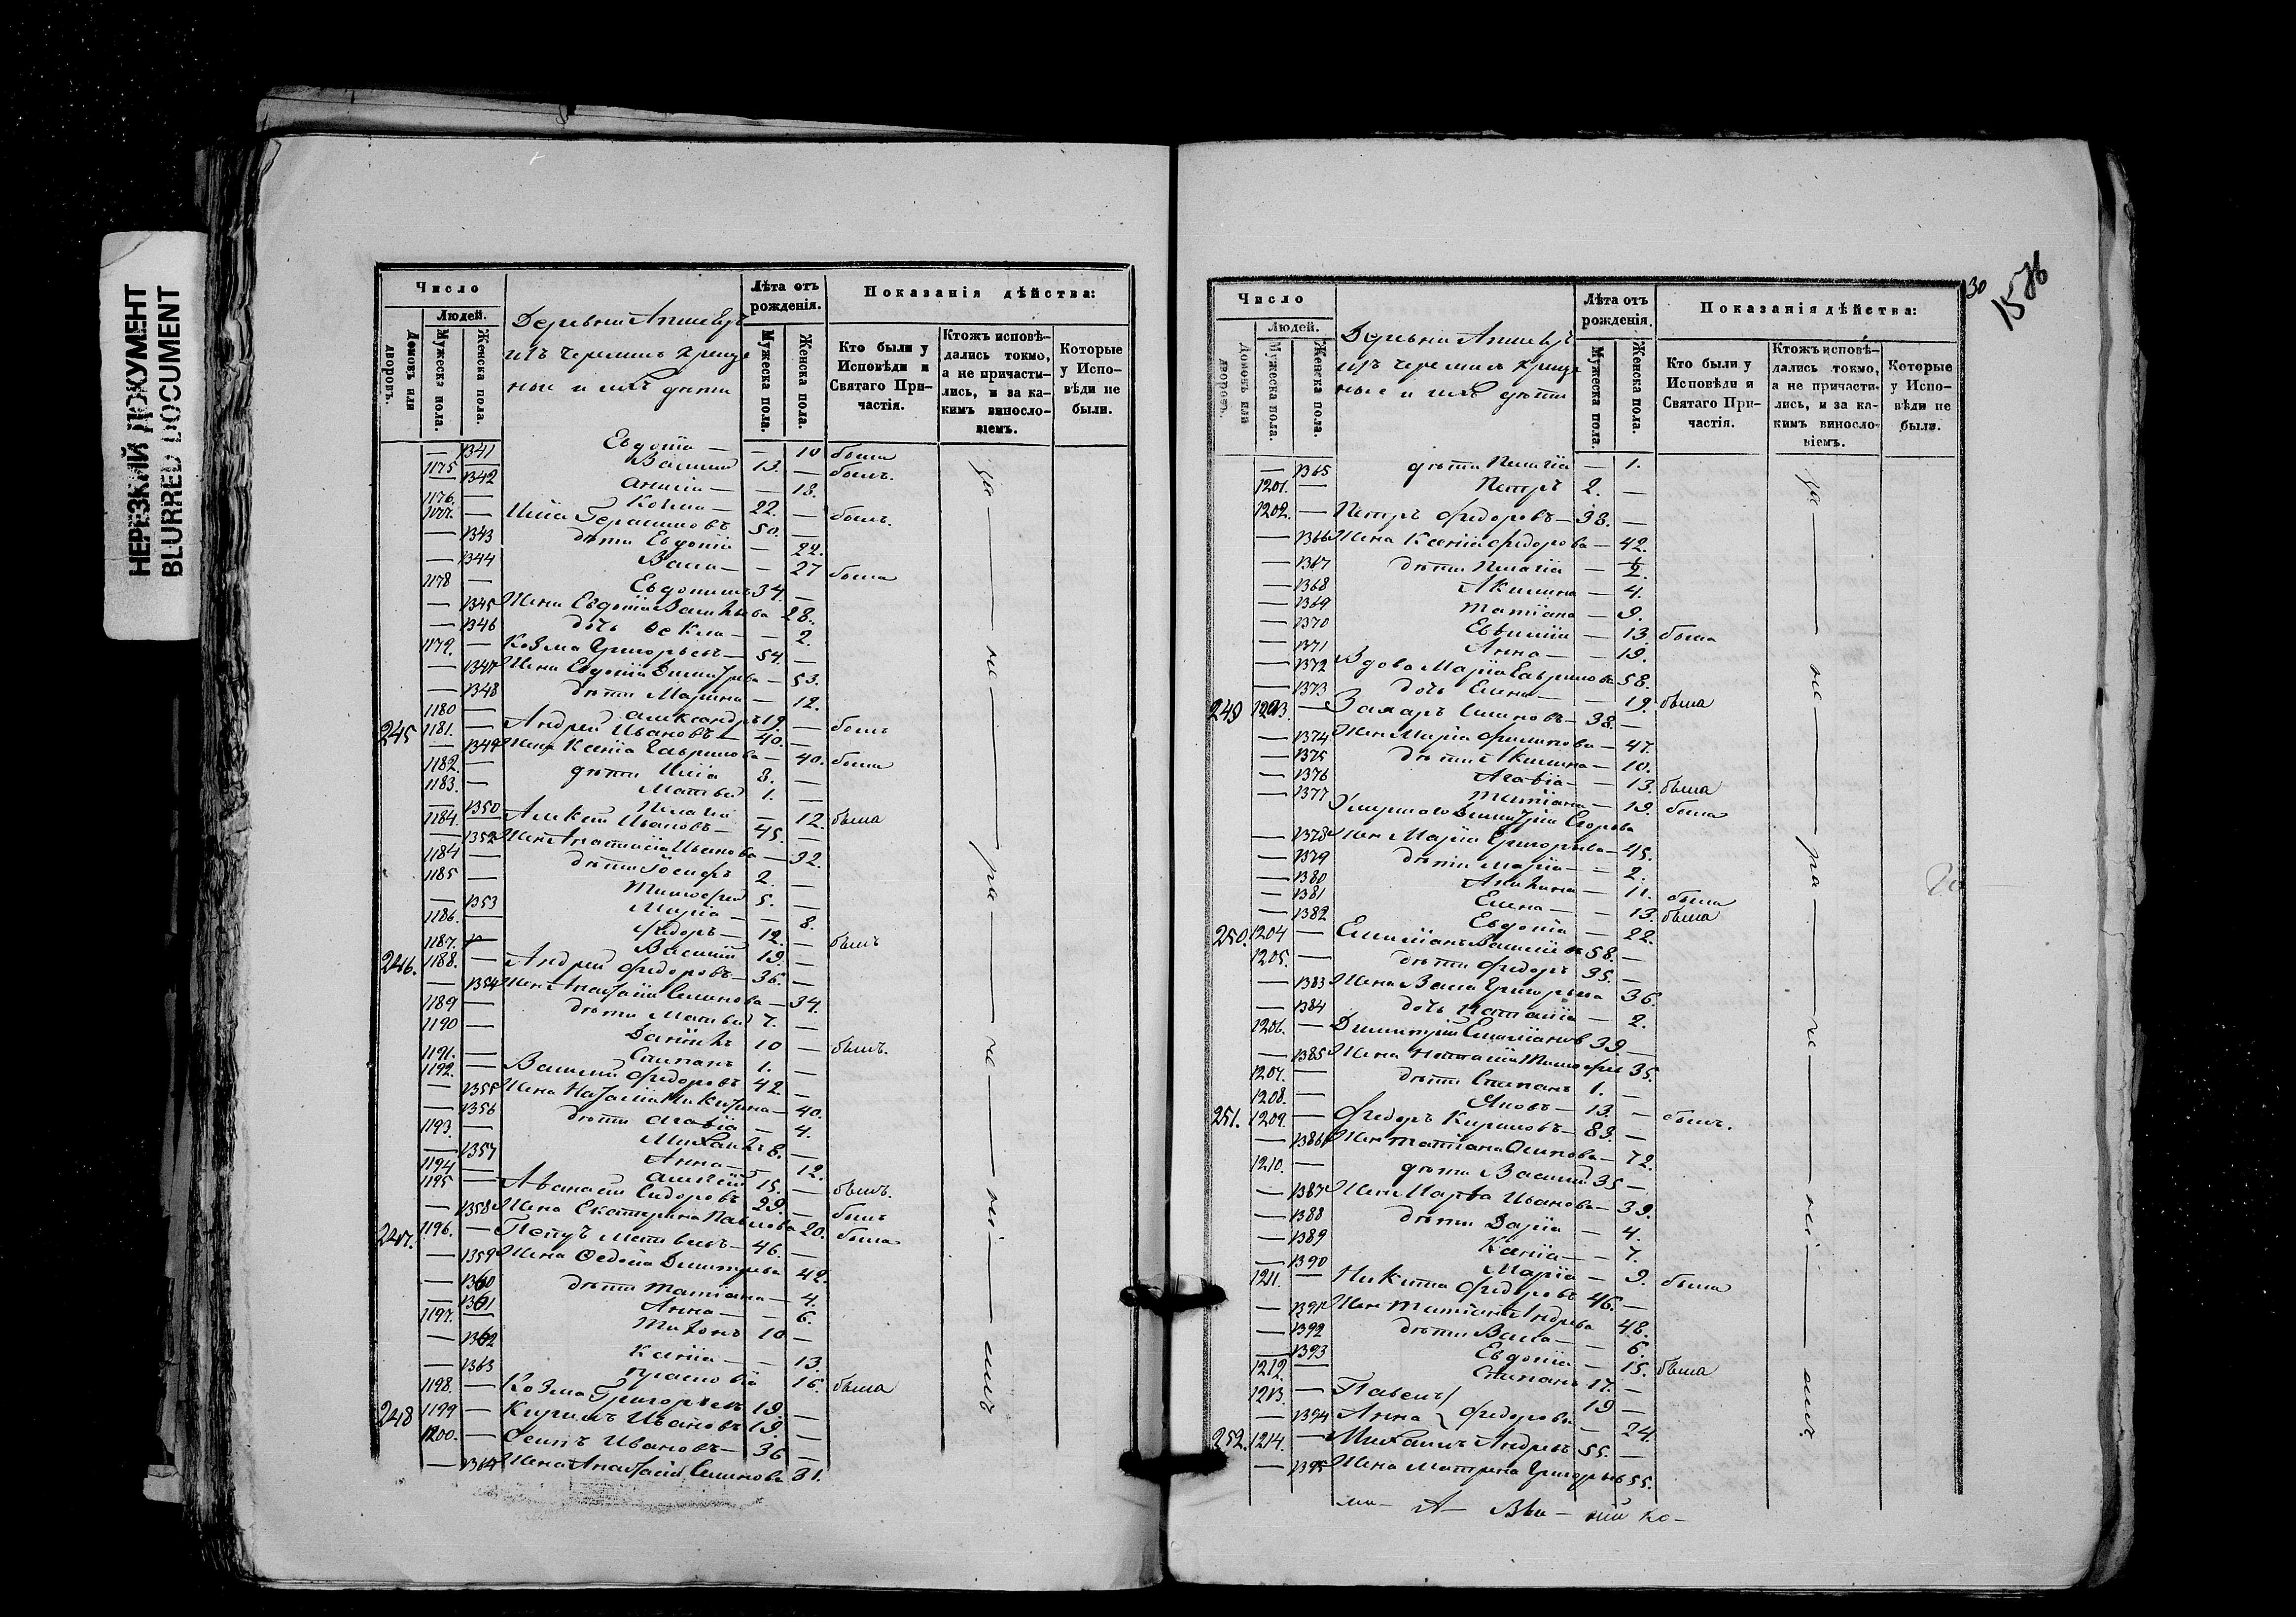 НЕРЕЗКИЙ ДОКУМЕНТ
BLURRED DOCUMENT
Число
Людей.
Домовъ или дворовъ.
Мужеска пола.
Женска пола.
Деревни
изъ черемисъ креще
ные и ихъ дѣти
Лѣта отъ рожденія.
Мужеска пола.
Женска пола.
Показанія дѣйства:
Кто были у Исповѣди и Святаго Причастія.
Ктожъ исповѣдались токмо, а не причастились, и за какимъ винословіемъ.
Которые у Исповѣди не были.
— 1341 Евдокія — — 10 была
1175 — Василий 13. — былъ.
— 1342 Анисія — — 18.
1176. — Козма — 22. — былъ.
1177. — Илія Герасимовъ 50. —
— 1343 дѣти Евдокія — 22.
— 1344 Васса — — 27 была
1178 — Евдокимъ 34. —
— 1345 Жена Евдокія Васильева 28.
— 1346 дочь Ѳекла — — 2.
1179. — Козма Григорьевъ — 54. —
— 1347 Жена Евдокія Димитріева — 53.
— 1348 дѣти Марина — 12.
1180 — Александръ 19. — былъ
245 1181. — Андрей Ивановъ — 40. —
— 1349 Жена Ксенія Гаврилова — 40. была
1182. — дѣти Илія 3. —
1183. — Матвей 1. —
— 1350 Пелагія — 12. была
1184. — Алексій Ивановъ — 45. —
— 1352 Жена Анастасія Иванова — 32.
1184 — дѣти Іосифъ 2. —
1185 — Тимофей 5. —
— 1353 Марія — — 8.
1186. — Федоръ — 12. — былъ
1187. — Василий 19. —
246. 1188. — Андрей Федоровъ — 36. —
— 1354 Жена Анастасія Семенова — 34.
1189 — дѣти Матвей 7. —
1190 — Даніилъ 10 — былъ.
1191. — Степанъ 1. —
1192. — Василий Федоровъ 42. —
— 1355 Жена Наталія Никитина — 40.
— 1356 дѣти Агафія — 4.
1193. — Михаилъ 8. —
— 1357 Анна — — 12.
1194 — Алексій 15. — былъ.
1195 — Афанасій Сидоровъ 29. — былъ
— 1358 Жена Екатерина Павлова 20. была
247. 1196. — Петръ Матвеевъ — 46. —
— 1359 Жена Федосія Димитріева 42.
— 1360 дѣти Татіана — 4.
— 1361 Анна — — 6.
1197. — Тихонъ 10 —
— 1362 Ксенія — — 13.
— 1363 16. была
1198. — Козма Григорьевъ 19. —
248 1199 — Кирилъ Ивановъ 19. —
1200. — Осипъ Ивановъ — 36 —
— 1364 Жена Анастасія Семенова 31.
за — не — ра — че — ні — емъ
30
Число
Людей.
Домовъ или дворовъ.
Мужеска пола.
Женска пола.
Деревни
изъ черемисъ креще
ные и ихъ дѣти
Лѣта отъ рожденія.
Мужеска пола.
Женска пола.
Показанія дѣйства:
Кто были у Исповѣди и Святаго Причастія.
Ктожъ исповѣдались токмо, а не причастились, и за какимъ винословіемъ.
Которые у Исповѣди не были.
— 1365 дѣти Пелагія — 1.
1201. — Петръ 2. —
1202. — Петръ Федоровъ — 38. —
— 1366 Жена Ксенія Федорова — 42.
— 1367 дѣти Пелагія — 2.
— 1368 Акилина — 4.
— 1369 Татіана — 9.
— 1370 Евфимія — 13. была
— 1371 Анна — — 19.
— 1372 Вдова Марія Гаврилова 58.
— 1373 дочь Елена — — 19. была
249 1203. — Захаръ Семеновъ — 38. —
— 1374 Жена Марія Филипова — 47.
— 1375 дѣти Акилина — 10.
— 1376 Агафія — — 13. была
— 1377 Татіана — 19. была
Умершаго Димитрія Егорова
— 1378 Жена Марія Григорьева — 45.
— 1379 дѣти Марія — — 2.
— 1380 — 11. была
— 1381 Елена — — 13. была
— 1382 Евдокія — 22.
250. 1204 — Емиліанъ Василіевъ 58. —
1205. — дѣти Федоръ 35. —
— 1383 Жена Васса Григорьева 36.
— 1384 дочь Наталія — 2.
1206. — Димитрій Емиліановъ 39 —
— 1385 Жена Наталія Тимофеев 35.
1207. — дѣти Степанъ 1. —
1208. — Яковъ — 13. — былъ.
251. 1209. — Федоръ Кириловъ — 83. —
— 1386 Жена Татіана Осипова — 72.
1210. — дѣти Василий 35 —
— 1387 Жена Марфа Иванова — 39.
— 1388 дѣти Дарія — 4.
— 1389 Ксенія — — 7.
— 1390 Марія — 9. была
1211. — Никита Федоровъ 46. —
— 1391 Жена Татіана Андреева 48.
— 1392 дѣти Васса — — 6.
— 1393 Евдокія — 15. была
1212. — Степанъ 17. —
1213. — Павелъ Федоровы 19 —
— 1394 Анна — 24.
252. 1214. — Михаилъ Андреевъ 55. —
— 1395 Жена Матрена Григорьев 55.
за — не — ра — че — ні — емъ